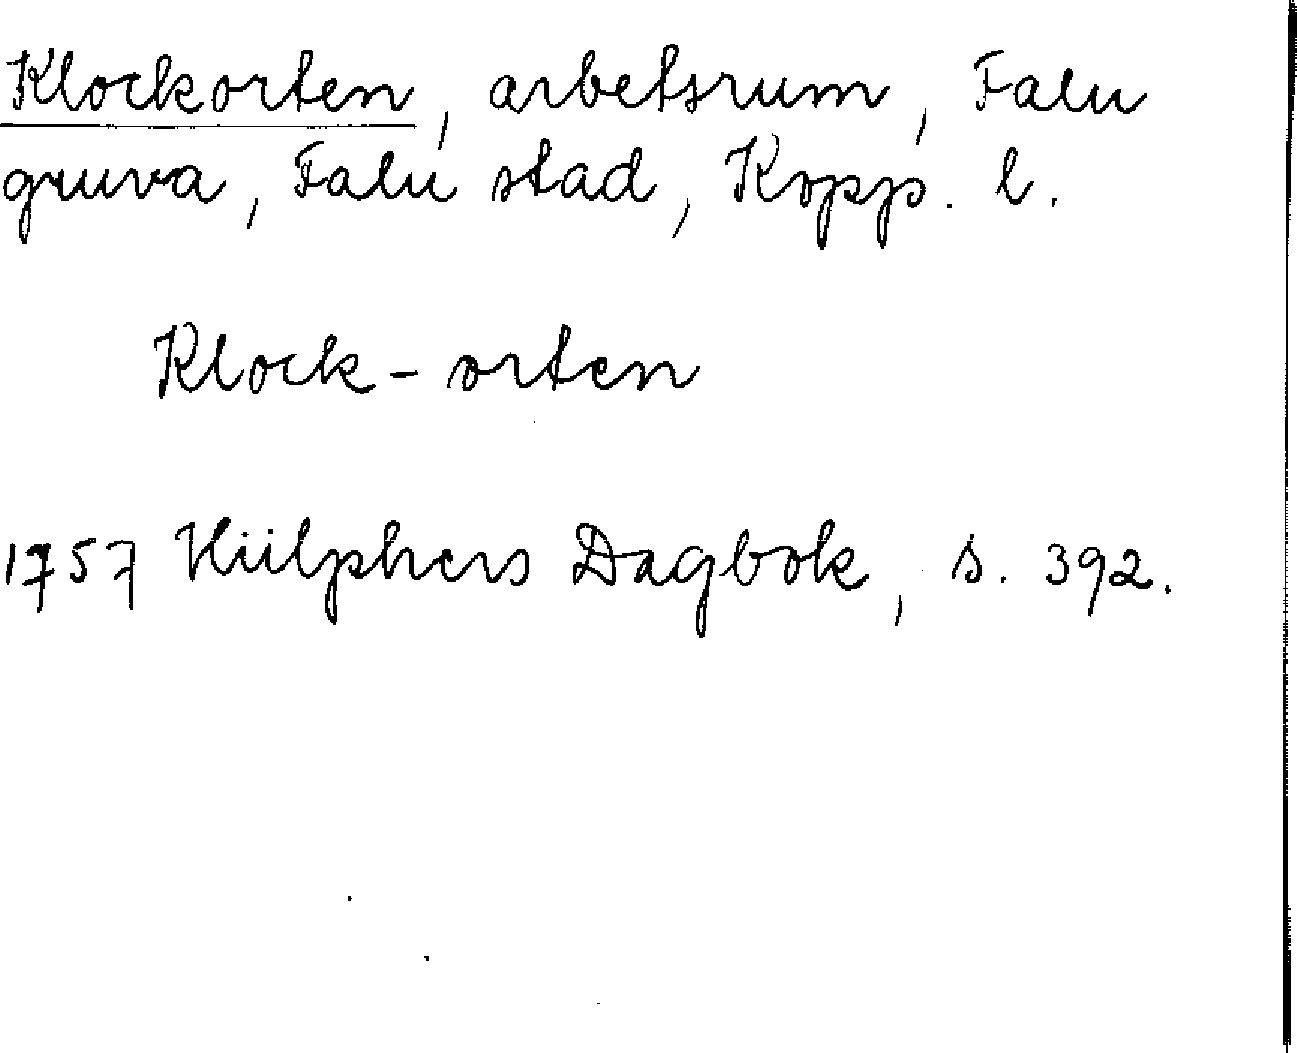 Klockorten, arbetsrum, Falu
gruva, Falu stad, Kopp. l.
Klock-orten
1757 Hülphers Dagbok, s. 392.